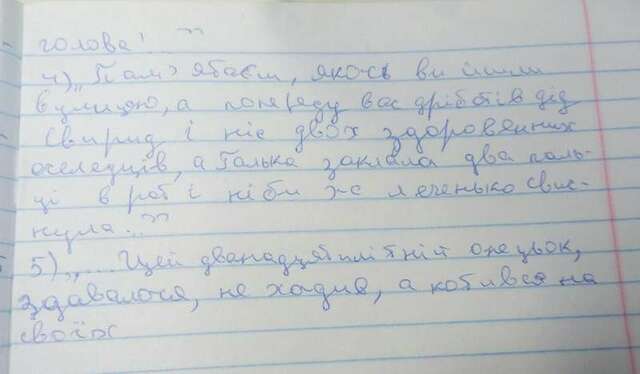 голова!..."
4) „Пам'ятаєш, якось ви йшли
вулицею, а попереду вас дріботів дід
Свирид і ніс двох здоровенних
оселедців, а Галька заклала два паль-
ці в рот і ніби же леченько свис-
нула..."
5) „....Цей дванадцятилітній опецьок,
здавалося, не ходив, а котився на
своїх